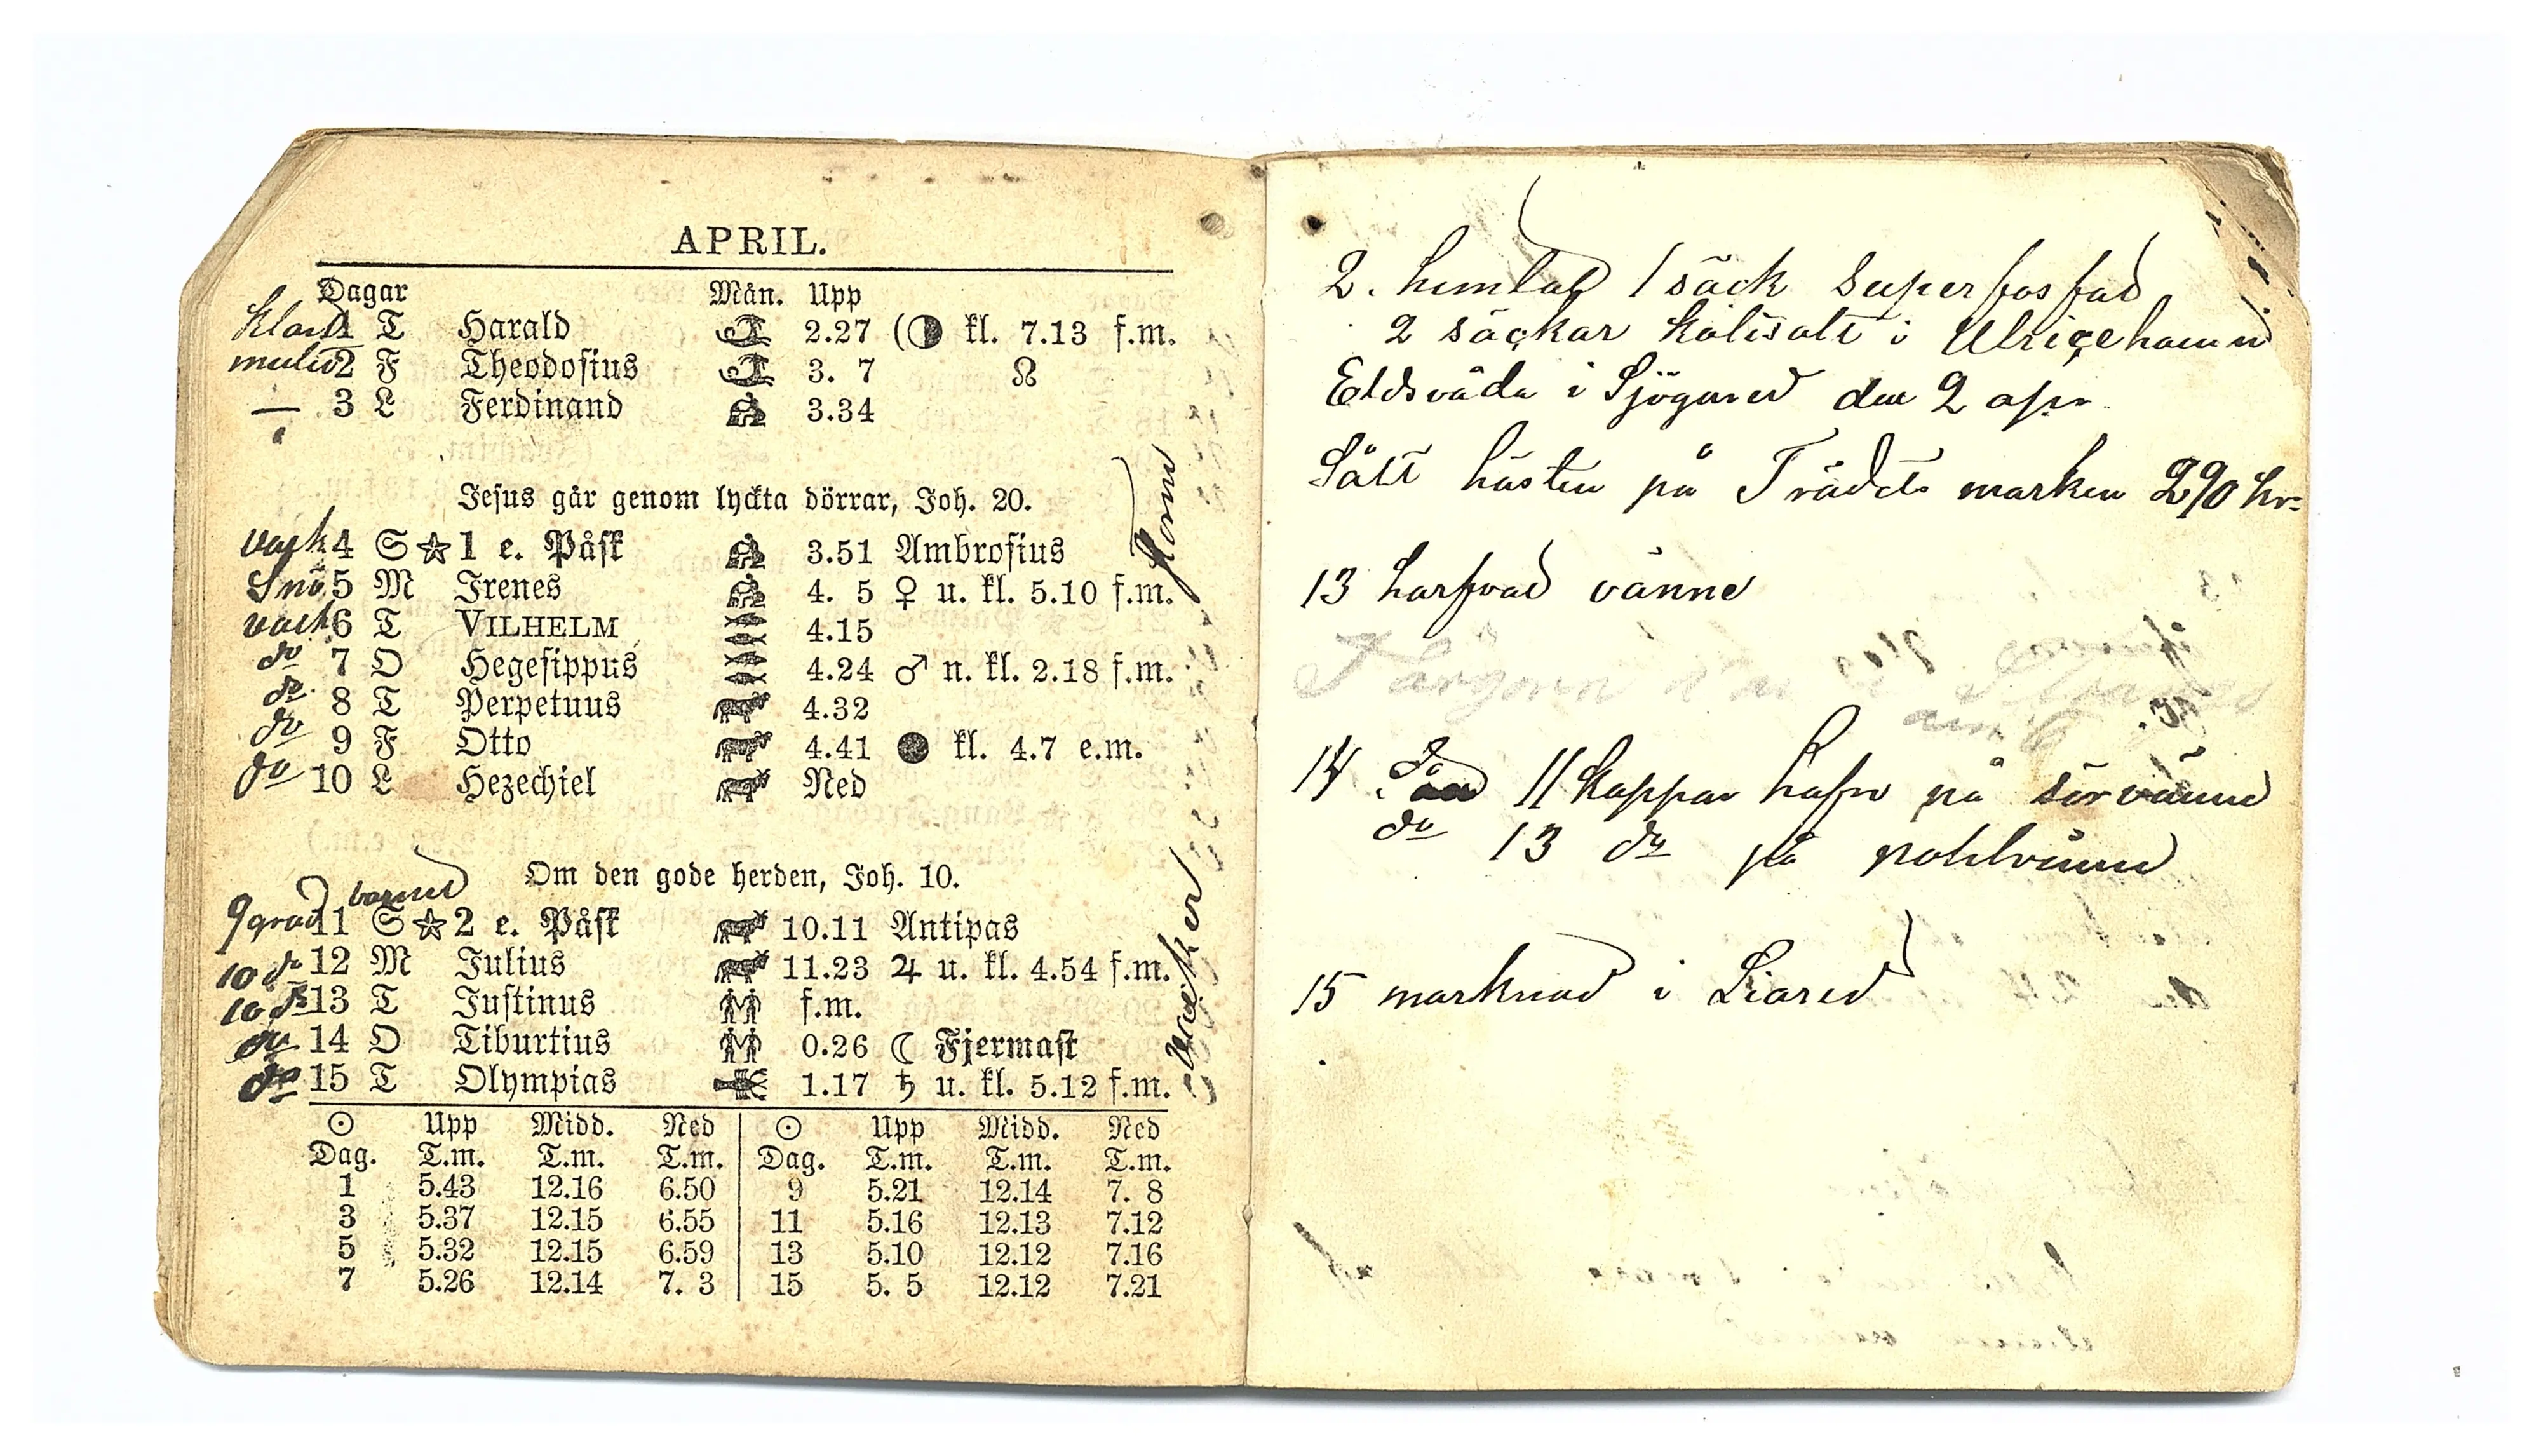 APRIL.
Dagar Mån. Upp
klart 1 T Harald 2.27 (◑ kl. 7.13 f.m.
mulit 2 F Theodosius 3. 7 ☊
— 3 L Ferdinand 3.34
Jesus går genom lyckta dörrar, Joh. 20.
vack 4 S ☆ 1 e. Påsk 3.51 Ambrosius
Snö 5 M Irenes 4. 5 ♀ u. kl. 5.10 f.m.
vack 6 T VILHELM 4.15
do 7 O Hegesippus 4.24 ♂ n. kl. 2.18 f.m.
do 8 T Perpetuus 4.32
do 9 F Otto 4.41 ● kl. 4.7 e.m.
do 10 L Hezechiel Ned
Om den gode herden, Joh. 10.
varmt
9 grad 11 S ☆ 2 e. Påsk 10.11 Antipas
10 do 12 M Julius 11.23 ♃ u. kl. 4.54 f.m.
10 do 13 T Justinus f.m.
do 14 O Tiburtius 0.26 ☾ Fjermast
do 15 T Olympias 1.17 ♄ u. kl. 5.12 f.m.
☉ Upp Midd. Ned ☉ Upp Midd. Ned
Dag. T.m. T.m. T.m. Dag. T.m. T.m. T.m.
1 5.43 12.16 6.50 9 5.21 12.14 7. 8
3 5.37 12.15 6.55 11 5.16 12.13 7.12
5 5.32 12.15 6.59 13 5.10 12.12 7.16
7 5.26 12.14 7. 3 15 5. 5 12.12 7.21
2. hemtad 1 säck superfosfad
2 säckar kalisalt i Ulricehamn
Eldsvåda i Sjögared den 2 apr
Sålt hästen på Trädets marken 290 kr
13 harfvad vänne
14 11 kappar hafre på sörvänne
do 13 do på nohlvänne
15 marknad i Liared